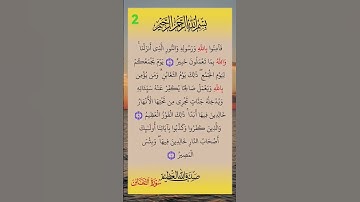 2
بسم الله الرحمن الرحيم
فَآمِنُوا بِاللَّهِ وَرَسُولِهِ وَالنُّورِ الَّذِي أَنْزَلْنَا ۚ
وَاللَّهُ بِمَا تَعْمَلُونَ خَبِيرٌ ۝ يَوْمَ يَجْمَعُكُمْ
لِيَوْمِ الْجَمْعِ ۖ ذَٰلِكَ يَوْمُ التَّغَابُنِ ۗ وَمَنْ يُؤْمِنْ
بِاللَّهِ وَيَعْمَلْ صَالِحًا يُكَفِّرْ عَنْهُ سَيِّئَاتِهِ
وَيُدْخِلْهُ جَنَّاتٍ تَجْرِي مِنْ تَحْتِهَا الْأَنْهَارُ
خَالِدِينَ فِيهَا أَبَدًا ۚ ذَٰلِكَ الْفَوْزُ الْعَظِيمُ ۝
وَالَّذِينَ كَفَرُوا وَكَذَّبُوا بِآيَاتِنَا أُولَٰئِكَ
أَصْحَابُ النَّارِ خَالِدِينَ فِيهَا ۖ وَبِئْسَ
الْمَصِيرُ ۝
صدق الله العظيم
سورة التغابن